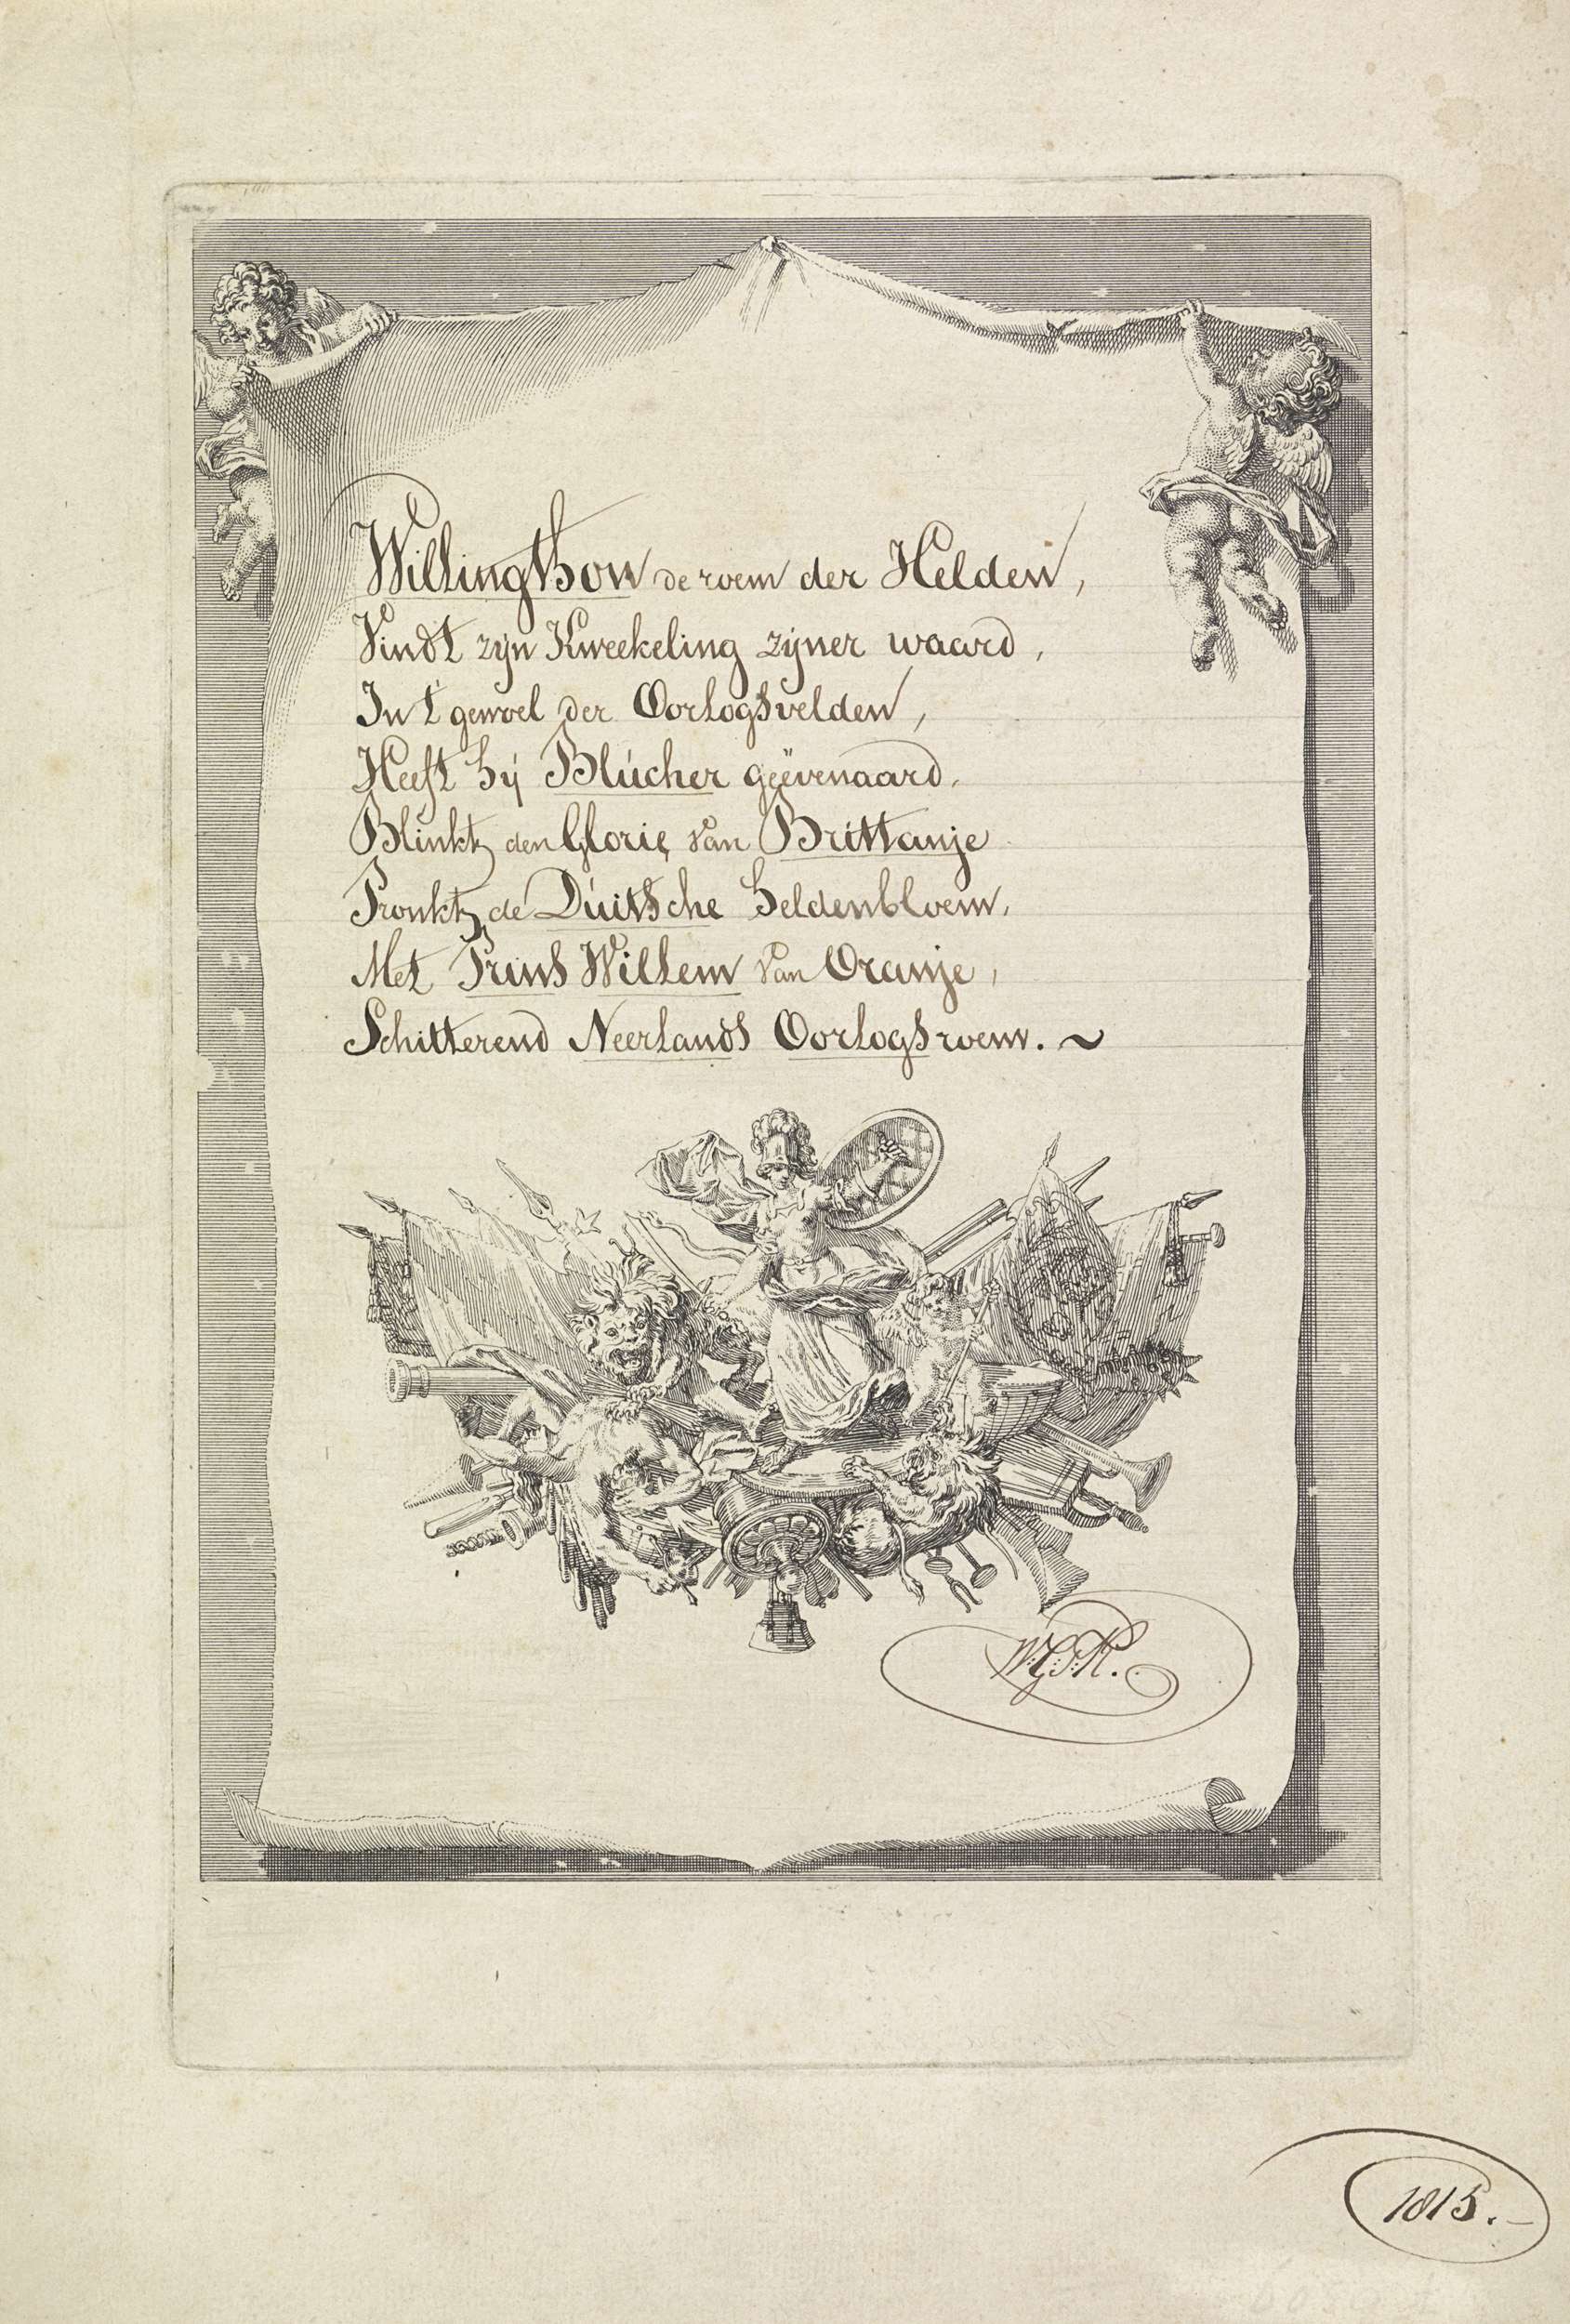 Willingthon de roem der Helden,
Vindt zyn Kweekeling zijner waard,
In 't gewoel der Oorlogsvelden,
Heeft hÿ Blücher geëvenaard.
Blinkt den Glorie van Brittanje
Pronkt de Duitsche heldenbloem,
Met Prins Willem van Oranje,
Schitterend Neerlands Oorlogsroem. ~
1815.-